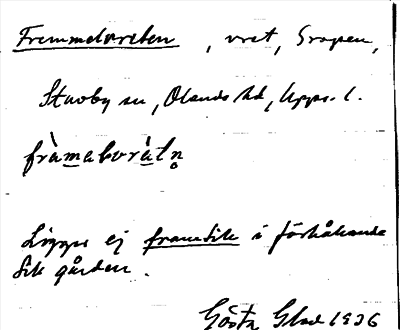 Fremmelvreten, vret, Gropen,
Stavby sn, Olands hd, Upps. l.
fràmaborátn̥
Ligger ej framstik i förhållande
till gården.
Gösta Glad 1936